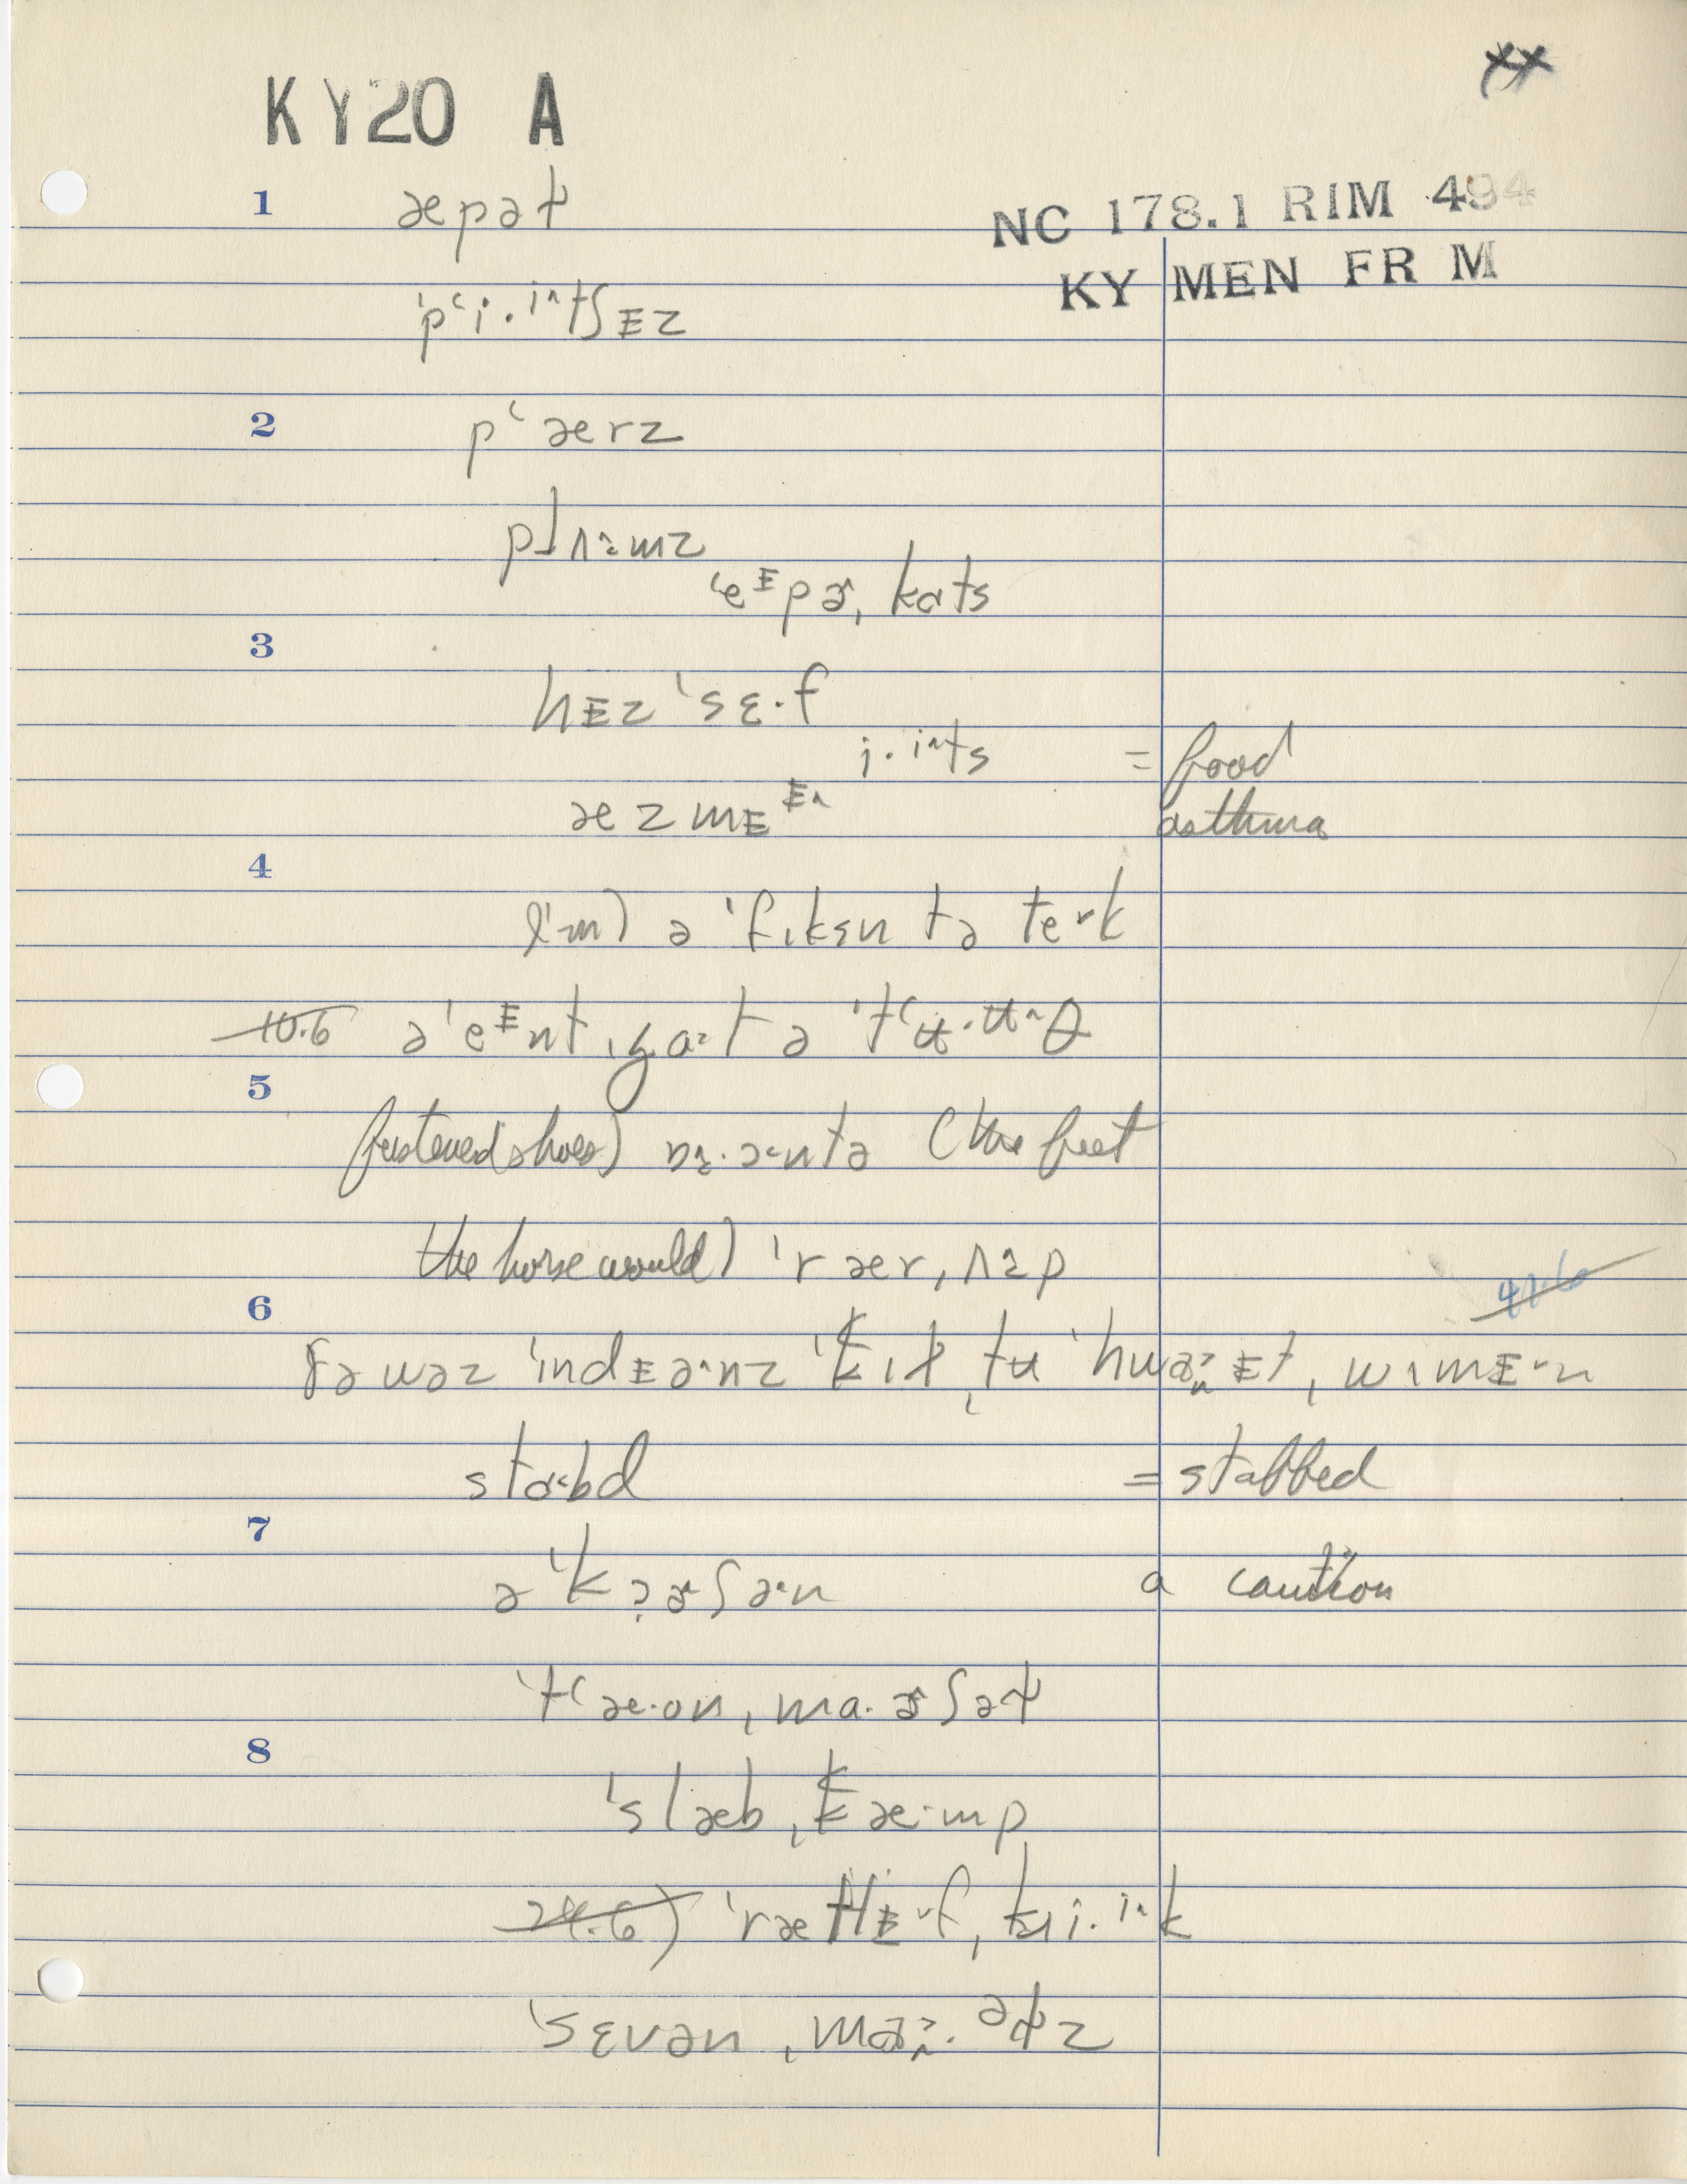 xx
KY20 A
NC 178.1 RIM 494
KY MEN FR M
1 æpəɫ
ˈpʻi·i˄tʃᴇz
2 pʻærz
plʌ˞mz
ˈeᴱpɚˌkɑts
3 hᴇzˈsɛ·f
i·i˄ts = food
æzmᴇᴱ˄ asthma
4 I'm) ə ˈfɪksn tə te˅k
10.6 əˈeᴱntˌgɑ˃t ə ˈtʻʉ·ʉ˄θ
5 fastened shoes) ɔ·ə˂ntə (the feet
the horse would) ˈrærˌʌ˃p
6 ðə wəz ˈɪndᴇə˄nz ˈkʻɪɫ ˌtʉ ˈhwɑ˃ᴇt ˌwɪmᴇ˅n
41.6
stɑ˂bd = stabbed
7 ə ˈkɔɚʃə˄n a caution
ˈtʻæ·onˌmɑ·ɚʃəɫ
8 ˈslæbˌkʻæ·mp
24.6) ˈrætlᴇ˅fˌkri·i˄k
ˈsɛvənˌmɑ˃·əɫz